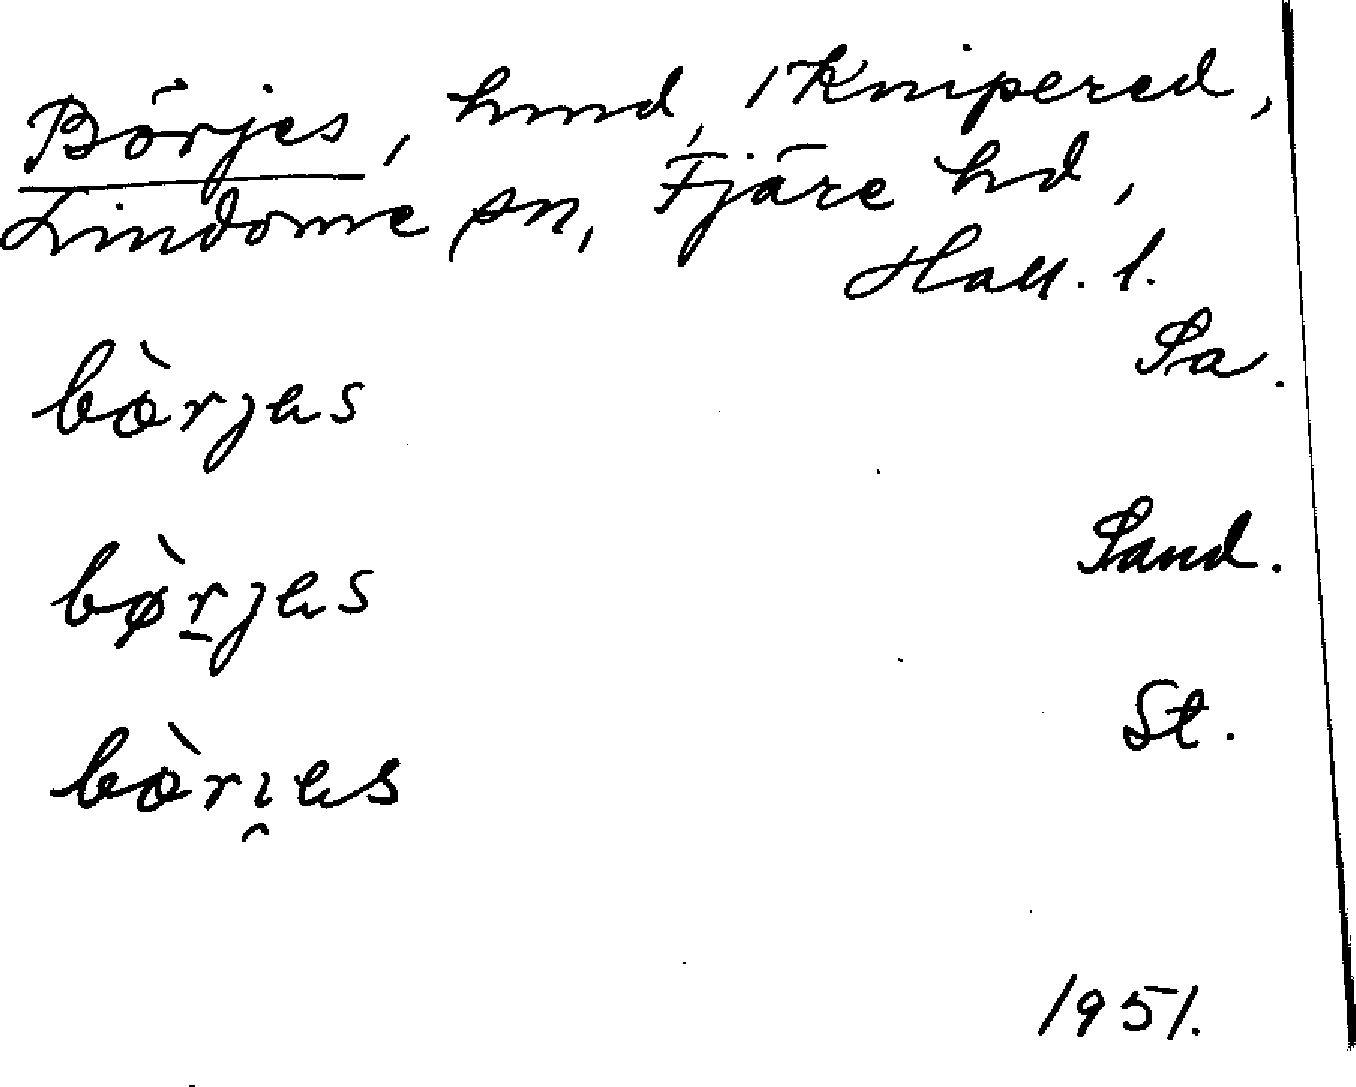 Börjes, hmd, i Knipered,
Lindome sn, Fjäre hd,
Hall. l.
Sa.
bòrjes
Sand.
bø̀rjes
St.
bòri̯es
1951.